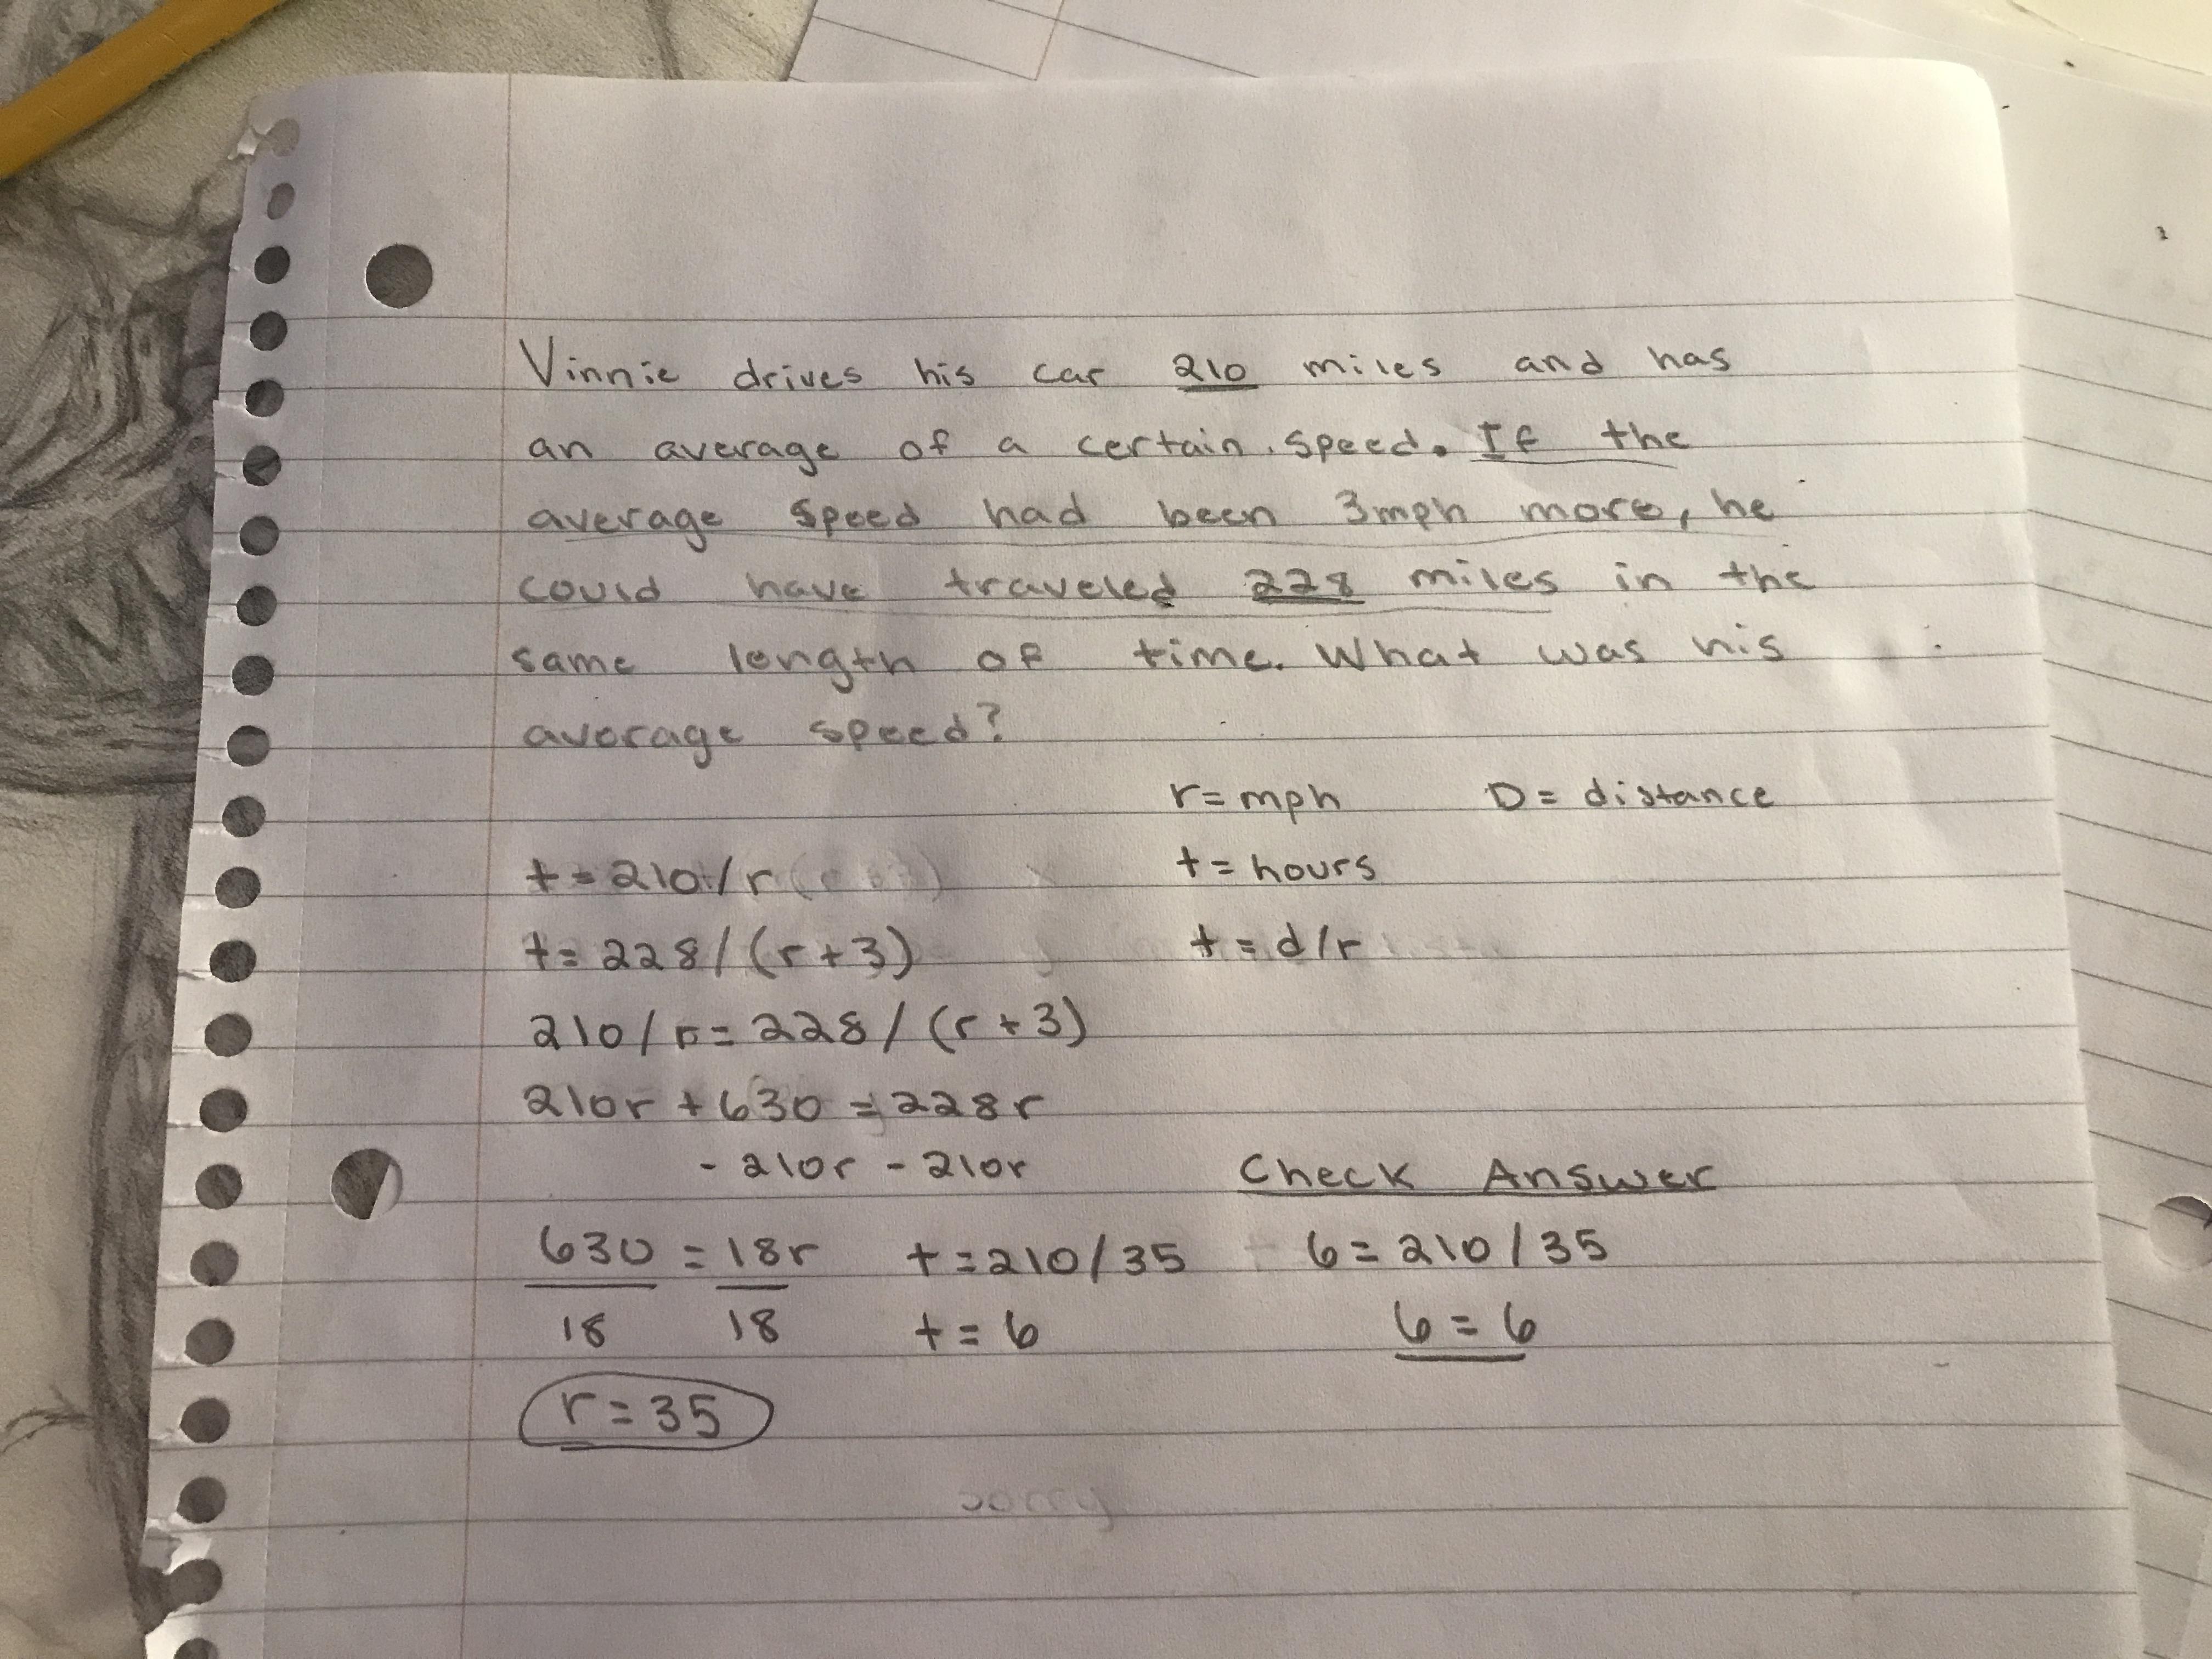 Vinnie drives his car 210 miles and has
an average of a certain speed. If the
average speed had been 3mph more, he
could have traveled 228 miles in the
same length of time. What was his
average speed?
r = mph D = distance
t = 210/r t = hours
t = 228/(r+3) t = d/r
210/r = 228/(r+3)
210r + 630 = 228r
- 210r - 210r Check Answer
630 = 18r t = 210/35 6 = 210/35
18 18 t = 6 6 = 6
r = 35
sorry